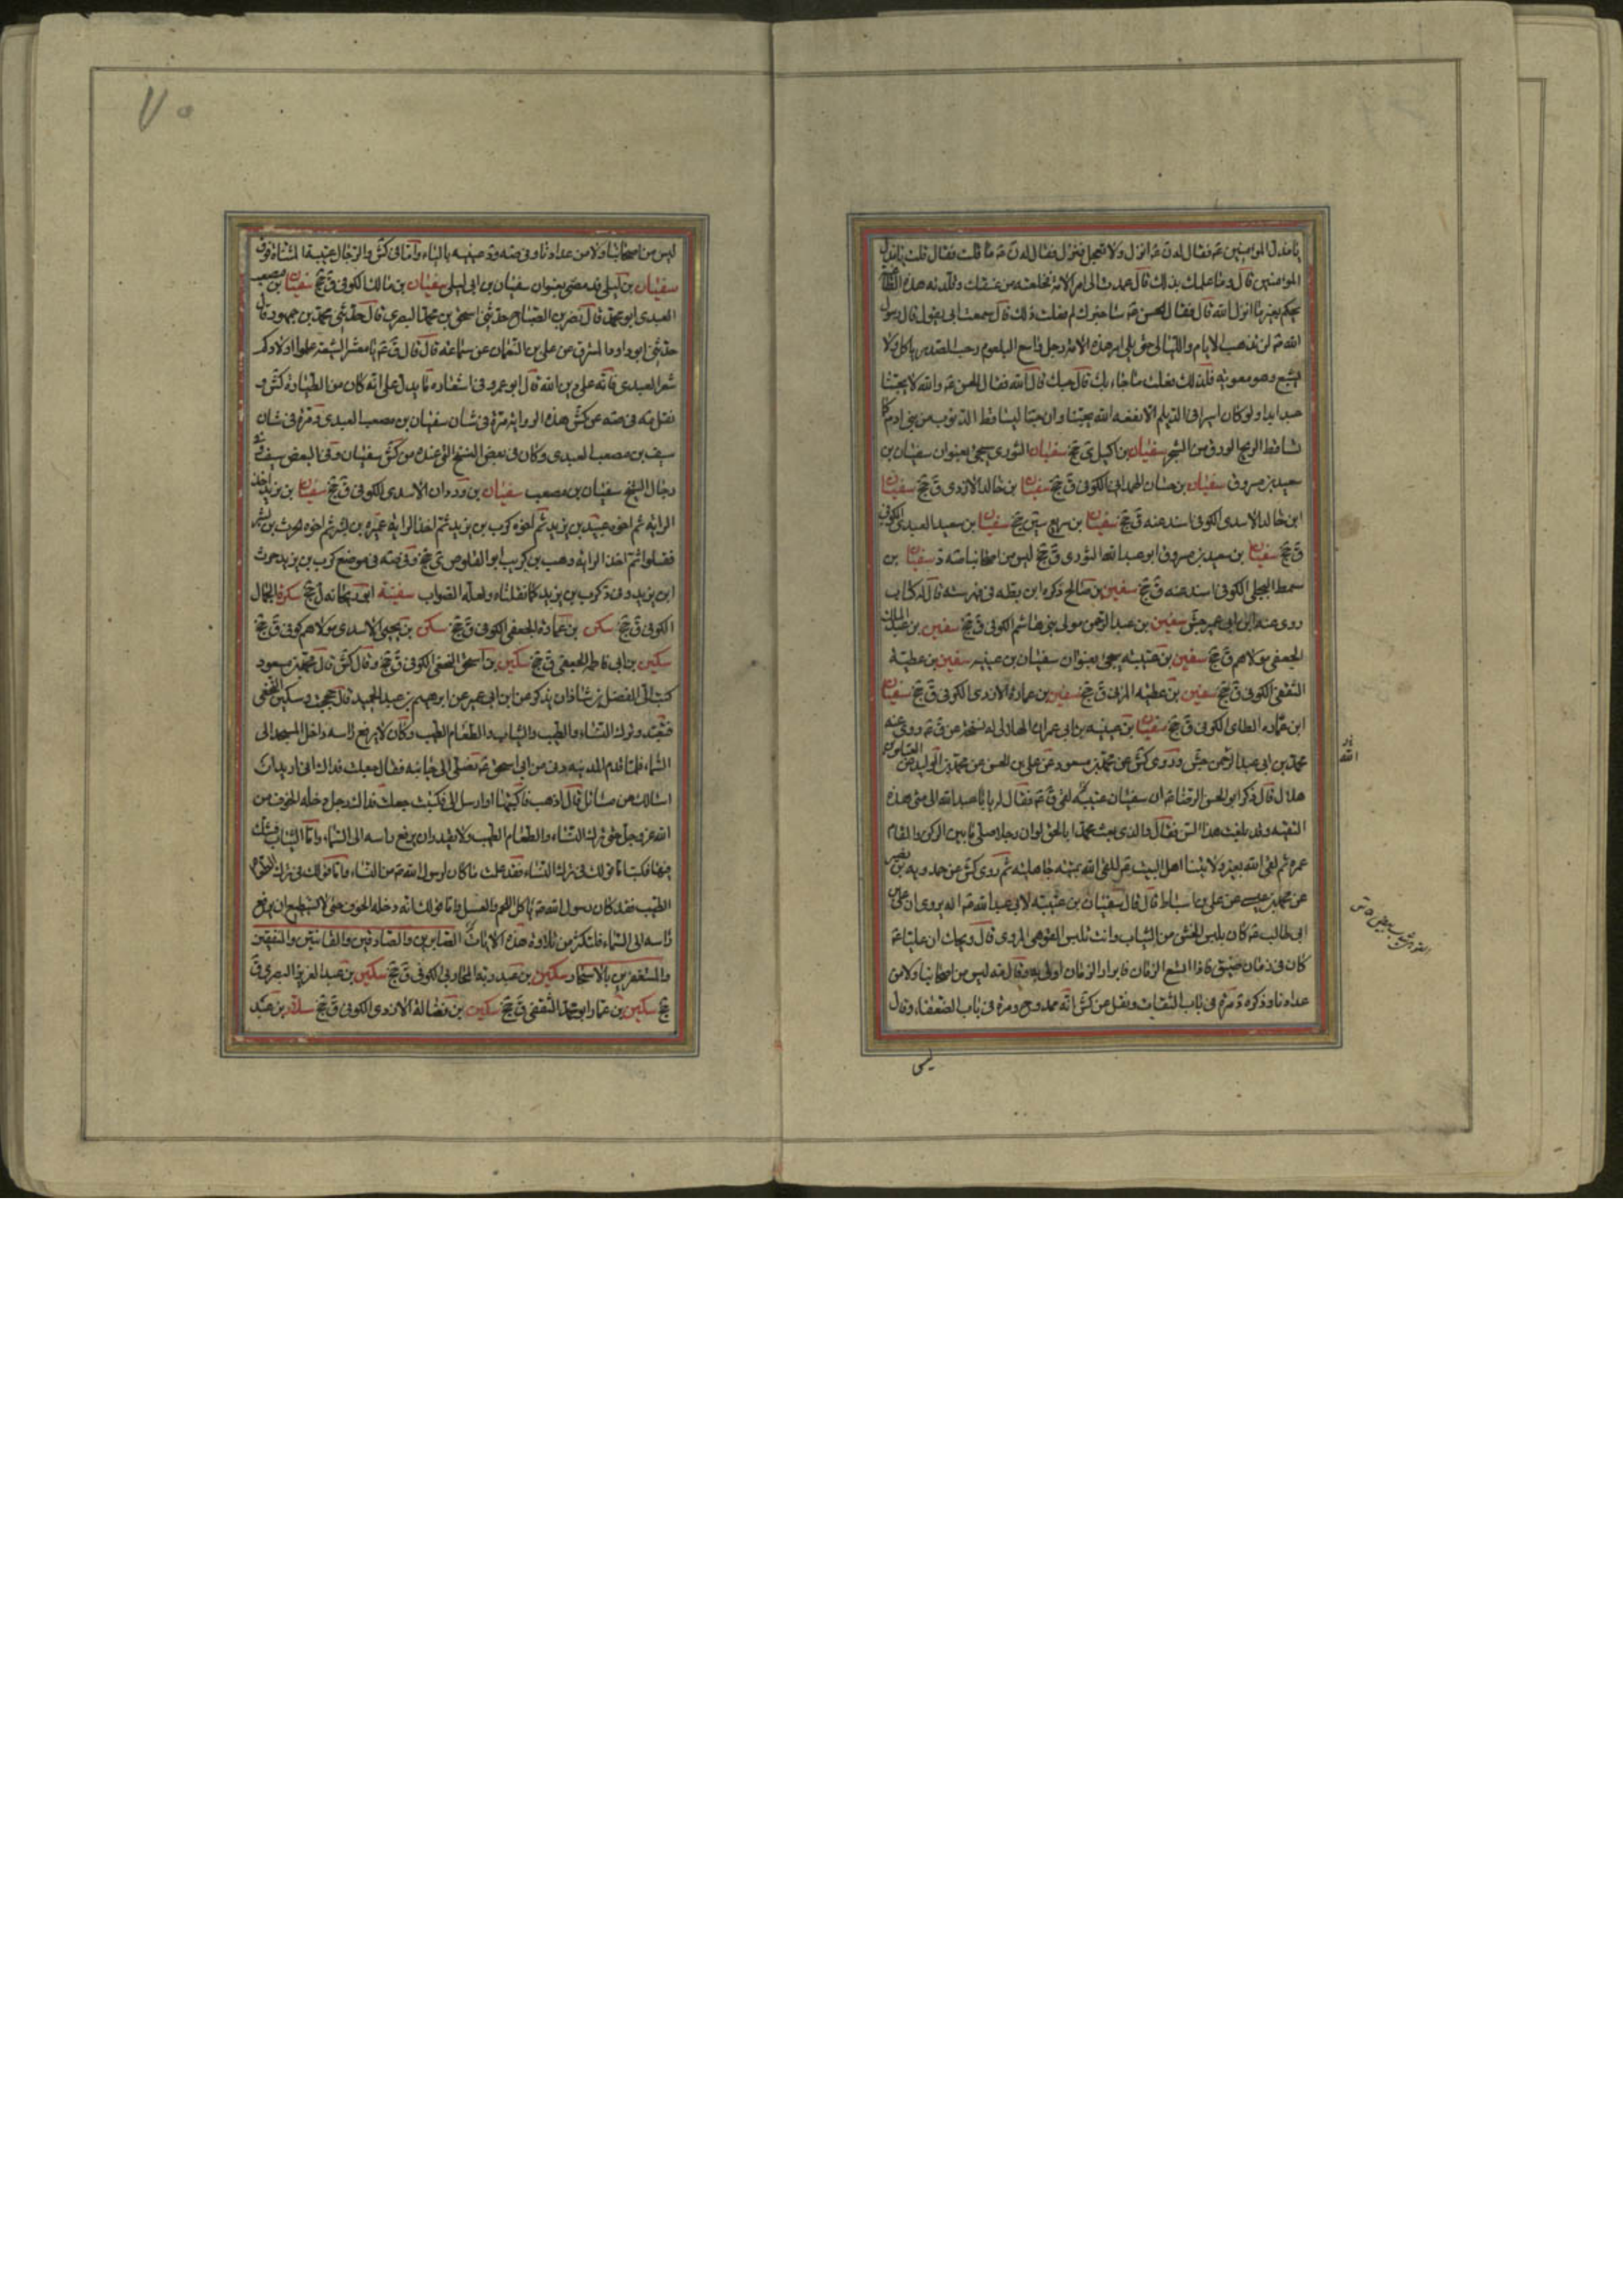 يا مذل المؤمنين فقال له ن انزل ولا تعجل فنزل فقال له ن ما قلت فقال قلت يا مذل
المؤمنين قال وما علمك بذلك قال عمدت الى امر الامة فخلعته من عنقك وقلدته هذه الطاغية
يحكم بغير ما انزل الله قال فقال الحسن ع ساخبرك لم فعلت ذلك قال سمعت ابي يقول قال رسول
الله ص لن تذهب الايام والليالي حتى يلي امر هذه الامة رجل واسع البلعوم رحب الصدر ياكل ولا
يشبع وهو معوية فلذلك فعلت ما جاء بك قال حبك قال الله فقال الحسن ع والله لا يحبنا
عبد ابدا ولو كان اسيرا في الديلم الا نفعه الله بحبنا وان حبنا ليساقط الذنوب من بني ادم كما
تساقط الريح الورق من الشجر سفيان بن اكيل ي جخ سفيان الثوري يجئ بعنوان سفيان بن
سعيد بن مسروق سفيان بن حسان الهمداني الكوفي ق جخ سفيان بن خالد الازدي ق جخ سفيان
ابن خالد الاسدي الكوفي اسند عنه ق جخ سفيان بن سريع سين جخ سفيان بن سعيد العبدي الكوفي
ق جخ سفيان بن سعيد بن مسروق ابو عبد الله الثوري ق جخ ليس من اصحابنا صه د سفيان بن
سمط البجلي الكوفي اسند عنه ق جخ سفين بن صالح ذكره ابن بطه في فهرسته قال له كتاب
روى عنه ابن ابي عمير جش سفين بن عبد الرحمن مولى بني هاشم الكوفي ق جخ سفين بن عبد الملك
الجعفي مولاهم ق جخ سفين بن عتيبه يجئ بعنوان سفيان بن عيينه سفين بن عطية
الثقفي الكوفي ق جخ سفين بن عطيه المزني ق جخ سفين بن عمارة الازدي الكوفي ق جخ سفيان
ابن عماره الطائي الكوفي ق جخ سفيان بن عيينه بن ابي عمران الهلالي له نسخة عن ق ع روى عنه
محمد بن ابي عبد الرحمن جش وروى كش عن محمد بن مسعود عن علي بن الحسن عن محمد بن الوليد عن العباس بن
هلال قال ذكر ابو الحسن الرضا ع ان سفيان عتيبه لقي ق ع فقال له يا با عبد الله الى متى هذه
التقيه وقد بلغت هذا السن فقال والذي بعث محمدا بالحق لو ان رجلا صلى ما بين الركن والمقام
عمره ثم لقي الله بغير ولايتنا اهل البيت للقي الله بميته جاهليه ثم روى كش عن حمدويه بن نصير
عن محمد بن عيسى عن علي بن اسباط قال قال سفيان بن عتيبه لابي عبد الله ع انه يروى ان علي بن
ابي طالب ع كان يلبس الخشن من الثياب وانت تلبس القوهي المروي قال ويحك ان عليا ع
كان في زمان ضيق فاذا اتسع الزمان فابرار الزمان اولى به وقال صه ليس من اصحابنا ولا من
عدادنا وذكره د مرة في باب الثقات ونقل عن كش انه ممدوح ومرة في باب الضعفاء وقال
ليس
ليس من اصحابنا ولا من عدادنا وفي صه ود عيينه بالياء واما في كش والرجال عتيبه فالمثناة فوق
سفيان بن ليلى قد مضى بعنوان سفيان بن ابي ليلى سفيان بن مالك الكوفي ق جخ سفيان بن مصعب
العبدي ابو محمد قال نصر بن الصباح حدثني اسحق بن محمد البصري قال حدثني محمد بن جمهور قال
حدثني ابو داود المسترق عن علي بن النعمان عن سماعه قال قال ق ع يا معشر الشيعة علموا اولادكم
شعر العبدي فانه على دين الله قال ابو عمرو في اشعاره ما يدل على انه كان من الطيارة كش و
نقل صه في صه عن كش هذه الرواية مرة في شان سفيان بن مصعب العبدي ومرة في شان
سيف بن مصعب العبدي وكان في بعض النسخ التي عنده من كش سفيان وفي البعض سيف
رجال الشيخ سفيان بن مصعب سفيان بن وردان الاسدي الكوفي ق جخ سفيان بن يزيد اخذ
الراية ثم اخوه عبيد بن يزيد ثم اخوه كرب بن يزيد ثم اخذ الراية عميره بن بشر ثم اخوه الحرث بن بشر
فقتلوا ثم اخذ الراية وهب بن كريب ابو القلوص ي جخ وفي صه في موضع كرب بن يزيد حرث
ابن يزيد وفي د كرب بن يزيد كما نقلناه ولعله الصواب سفينة ابو ريحانه ل جخ سكرة الجمال
الكوفي ق جخ سكن بن عمارة الجعفي الكوفي ق جخ سكن بن يحيى الاسدي مولاهم كوفي ق جخ
سكين بن ابي فاطمه الجعفي ق جخ سكين بن اسحق النخعي الكوفي ق جخ وقال كش قال محمد بن مسعود
كتب الي الفضل بن شاذان يذكر عن ابن ابي عمير عن ابرهيم بن عبد الحميد قال حججت وسكين النخعي
فتعبد وترك النساء والطيب والثياب والطعام الطيب وكان لا يرفع راسه داخل المسجد الى
السماء فلما قدم المدينه دنى من ابي اسحق ع فصلى الى جانبه فقال جعلت فداك اني اريد ان
اسالك عن مسائل قال اذهب فاكتبها وارسل الي فكتب جعلت فداك رجل دخله الخوف من
الله عز وجل حتى ترك النساء والطعام الطيب ولا يقدر ان يرفع راسه الى السماء واما الثياب فشك
فيها فكتب اما قولك في ترك النساء فقد علمت ما كان لرسول الله ص من النساء واما قولك في ترك الطعام
الطيب فقد كان رسول الله ص ياكل اللحم والعسل واما قولك انه دخله الخوف حتى لا يستطيع ان يرفع
راسه الى السماء فليكثر من تلاوة هذه الايات الصابرين والصادقين والقانتين والمنفقين
والمستغفرين بالاسحار سكين بن عبد ربه المحاربي الكوفي ق جخ سكين بن عبد العزيز البصري ق
جخ سكين بن عمار ابو محمد الثقفي ق جخ سكين بن فضالة الازدي الكوفي ق جخ سلار بن عبد